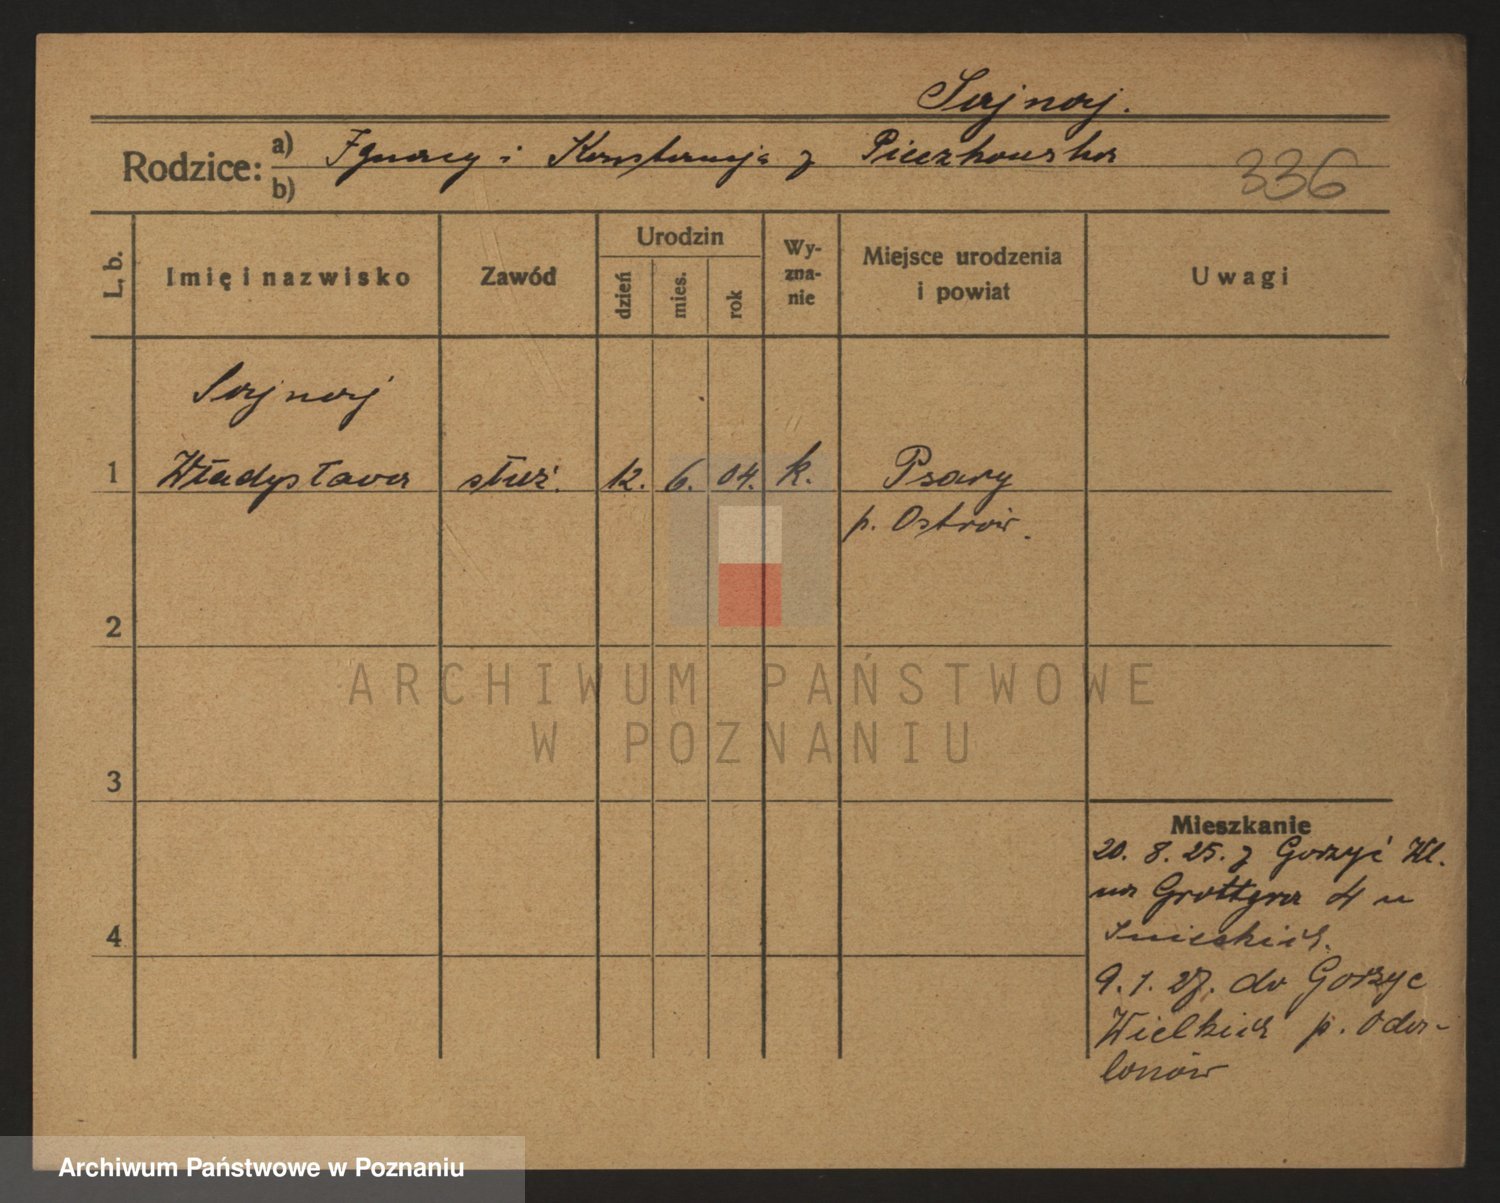 Sajnaj.
Rodzice: a) Ignacy i Konstancja z Pieczkowska
b)
336
L. b.
Imię i nazwisko
Zawód
Urodzin
dzień
mies.
rok
Wy-
zna-
nie
Miejsce urodzenia
i powiat
Uwagi
Sajnaj
1 Władysława służ. 12. 6. 04. k. Psary
p. Ostrów.
2
3
4
Mieszkanie
20. 8. 25. z Gorzyć Wl.
na Grottgera 4 u
9. 1. 27. do Gorzyc
Wielkich p. Oda-
lonów
ARCHIWUM PAŃSTWOWE
W POZNANIU
Archiwum Państwowe w Poznaniu